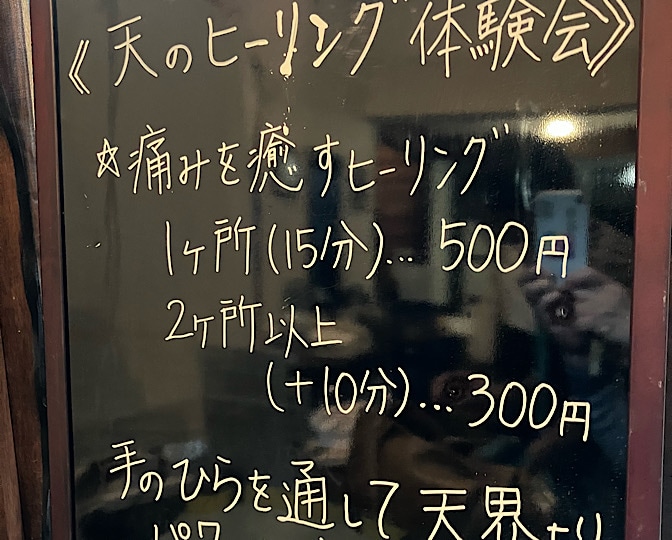 《天のヒーリング体験会》
☆痛みを癒すヒーリング
1ヶ所(15分)…500円
2ヶ所以上
(+10分)…300円
手のひらを通して天界より
パワー